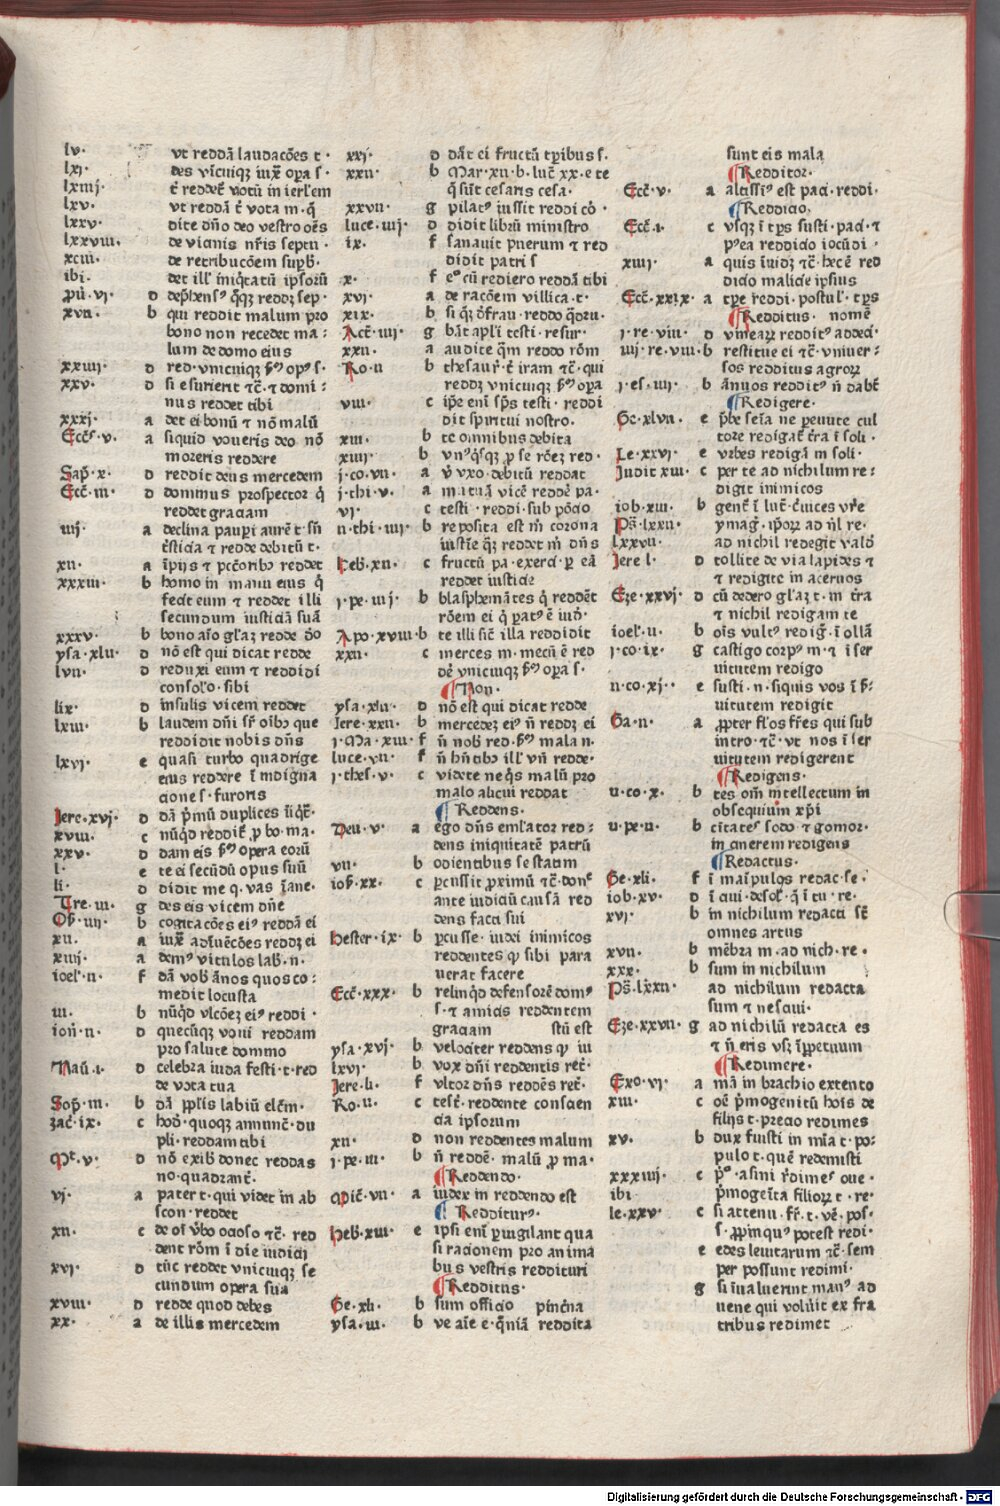 lv· vt reddā laudacōes t·
lxj· des vnicuiqʒ iuxͣ oꝑa s·
lxiiij· t̄ reddet̄ votū in ierl'em
lxv· vt reddā t̄ vota m·q̄
lxxv· dite dn̄o deo vestro oēs
lxxviii· de vianis nr̄is septu·
xciii· de retribucōem supb̄·
ibi· det ill' iniq̄tatū ipsorū
ꝓu̇·vj· d dephens⁹ q̄qʒ reddʒ sep·
xvii· b qui reddit malum pro
bono non recedet ma⸗
lum de domo eius
xxiiij· d red·vnicuiqʒ ẜm opꝰ s·
xxv· d si esurient tc̄·t domi⸗
nus reddet tibi
xxxj· a det ei bonū t nō malū
Eccs̄·v· a siquid voueris deo nō
moreris reddere
Sap̄·x· d reddit deus mercedem
Ecc̄·iii· d dominus prospector q̄
reddet graciam
iiij· a declina pauꝑi aurē t·sn̄
t̄sticia t redde debitū t·
xii· a īpijs t pctōribꝰ reddet
xxxiii· b homo in manu eius q̄
fecit eum t reddet illi
secundum iusticiā suā
xxxv· b bono aīo gl'aʒ redde dō
ysa·xlii· d nō est qui dicat redde
lvii· d reduxi eum t reddidi
consol'o·sibi
lix· d insulis vicem reddet
lxiii· b laudem dn̄i sr̄ oībꝰ que
reddidit nobis dn̄s
lxvj· e quasi turbo quadrige
eius reddere ī indigna
cione s·furoris
Jere·xvj· d dā p̄mū duplices īiq̄t̄·
xviii· c nūqd reddit̄ ꝓ bo·ma·
xxv· d dam eis ẜm opera eorū
l· e te ei secūdū opus suū
li· d didit me q·vas īane·
Tre·iii· g des eis vicem dn̄e
Os̄·iiij· b cogitacōes eiꝰ reddā ei
xii· a iuxͣ adīuēcōes reddʒ ei
xiiij· a demꝰ vitulos lab·n·
ioel·ii· f dā vob̄ ānos quos co⸗
medit locusta
iii· b nūqd vlcōeʒ eiꝰ reddi·
ion̄·ii· d quecūqʒ voui reddam
pro salute domino
Naū·i· d celebra iuda festi·t·red
de vota tua
Sop̄·iii· b dā ꝓpl'is labiū elc̄m·
zac̄·ix· c hod̄·quoqʒ annunc̄·du
pli·reddam tibi
Mt·v· d nō exib̄ donec reddas
no·quadrant̄·
vj· a pater t·qui videt in ab
scon·reddet
xii· c de oī v̄bo ocioso tc̄·red
dent rōm ī die iudicij
xvj· d tūc reddet vnicuiqʒ se
cundum opera sua
xviii· d redde quod debes
xx· a de illis mercedem
xxj· d dāt ei fructū tꝑibus s·
xxii· b Mar·xii·b·luc̄ xx·e te
q̄ sūt cesaris cesa·
xxvii· g pilatꝰ iussit reddi cō·
luce·iiij· d didit librū ministro
ix· f sanauit puerum t red
didit patri s
x· f eº cū rediero reddā tibi
xvj· a de racōem villica·t·
xix· b si qʒ d̄frau·reddo q̄dru·
Act̄·iiij· g bāt apl'i testi·resur·
xxii· a audite q̄m reddo rōm
Ro·ii b thesaur̄·t̄ iram tc̄·qui
reddʒ vnicuiqʒ ẜm oꝑa
viii· c ip̄e eni sp̄s testi·reddi
dit spiritui nostro·
xiii· b te omnibus debita
xiiij· b vnꝰq̄sqʒ ꝓ se rōeʒ red·
j·co·vii· a v̄ vxo·debitū reddat
j·thi·v· a mutuā vicē reddē pa·
vj· c testi·reddi·sub pōcio
ii·thi·iiij· b reposita est m̄ corona
iusticie q̄ʒ reddet m̄ dn̄s
Heb̄·xii· c fructū pa·exerci·ꝑ eā
reddet iusticie
j·pe·iiij· b blasphemātes q̄ reddēt
rōem ei q̄ ꝑatꝰ ē iud̄·
Apo·xviii· b te illi sic̄ illa reddidit
xxii· c merces m·mecū ē red
dē vnicuiqʒ ẜm oꝑa s·
¶Non·
ysa·xlii· d nō est qui dicat redde
Jere·xxii· b mercedeʒ eiꝰ n̄ reddʒ ei
j·Ma·xiii· f n̄ nob̄ red·ẜm mala n·
luce·vii· f n̄ hn̄tibꝰ ill' vn̄ redde·
j·thes·v· c videte neq̄s malū pro
malo alicui reddat
¶Reddens·
Deu·v· a ego dn̄s eml'ator red⸗
dens iniquitatē patrū
vii· b odientibus se statim
iob̄·xx· c ꝑcussit ꝓximū tc̄·don̄
ante iudiciū causā red
dens facti sui
Hester·ix· b ꝑcusse·iudei inimicos
reddentes qͥ sibi para
uerat facere
Ecc̄·xxx· b relinqd defensorē domꝰ
s·t amicis reddentem
graciam stū est
ysa·xvj· b velociter reddens qͥ iu
lxvj· b vox dn̄i reddentis ret̄·
Jere·li· f vltor dn̄s reddēs ret̄·
Ro·ii· c test̄·reddente conscien
cia ipsorum
xii· d non reddentes malum
j·pe·iii· b n̄ reddē·malū ꝓ ma·
¶Reddendo·
Mic̄·vii· a iudex in reddendo est
¶Redditurꝰ·
Heb̄·xiii· e ipsi eni ꝑuigilant qua
si racionem pro anima
bus vestris reddituri
¶Redditus·
Ge·xli· b sum officio pincīna
ysa·iii· b ve aīe e·q̄niā reddita
sunt eis mala
¶Redditor·
Ecc̄·v· a altissiꝰ est paci·reddi·
¶Reddicio,
Ecc̄·i· c vsqʒ ī tp̄s susti·paci·t
p⁹ea reddicio iocūdi·
xiiij· a quis īuidʒ tc̄·hec ē red
dicio malicie ipsius
Ecc̄·xxix· a tp̄e reddi·postul'·tp̄s
¶Redditus·nomē
j·re·viii· d vinearꝝ redditꝰ addeci·
iiij·re·viii· b restitue ei tc̄·vniuer⸗
sos redditus agroꝝ
j·es·iiij· b ānuos redditꝰ n̄ dab̄t
¶Redigere·
Ge·xlvii· e p̄be seīa ne pereunte cul
tore redigat̄ t̄ra ī soli·
Le·xxvj· e vrbes redigā m soli·
Judit xiii· c per te ad nichilum re⸗
digit inimicos
iob·xiii· b gent̄ ī lut̄·c̄uices vr̄e
Ps̄·lxxii· ymag̃·ip̄oꝝ ad n̄l re·
lxxvii· ad nichil redegit valō
Jere l· d tollite de via lapides t
t redigite in aceruos
Eze·xxvj· d cū dedero gl'aʒ t·m t̄ra
t nichil redigam te
ioel·ii· b oīs vultꝰ redig̃·ī ollā
j·co·ix· g castigo corpꝰ m·t ī ser
uitutem redigo
ii·co·xj· e susti·n·siquis vos ī s̄⸗
uitutem redigit
Ga·ii· a ꝓpter fl'os fr̄es qui sub
intro·tc̄·vt nos ī ser
uitutem redigerent
¶Redigens·
ii·co·x· b tes om̄ intellectum in
obsequium xp̄i
ii·pe·ii· b citatꝰ sodo·t gomor·
in cinerem redigens
¶Redactus·
Ge·xli· f ī maīpulos redac·se·
iob·xv· d ī ciui·desol'·q̄ ī tu·re·
xvj· b in nichilum redacti st̄
omnes artus
xvii· b mēbra m·ad nich·re·
xxx· b sum in nichilum
Ps̄·lxxii· ad nichilum redacta
sum t nesciui·
Eze·xxvii· g ad nichilū redacta es
t n̄ eris vsʒ īꝑpetuum
¶Redimere·
Exo·vj· a mā in brachio extento
xiii· c oē p̄mogenitū hoīs de
filijs t·precio redimes
xv· b dux fuisti in mīa t·po⸗
pulo t·quē redemisti
xxxiiij· c p̄º·asini r̄dimes oue·
ibi p̄mogeīta filioꝝ t·re·
le·xxv· c si attenu·fr̄·t·vē·pos·
s·ꝓpinquꝰ potest redi·
e edes leuitarum tc̄·sem
per possunt redimi·
g si īualuerint manꝰ ad
uene qui volūit ex fra
tribus redimet
Digitalisierung gefördert durch die Deutsche Forschungsgemeinschaft · DFG